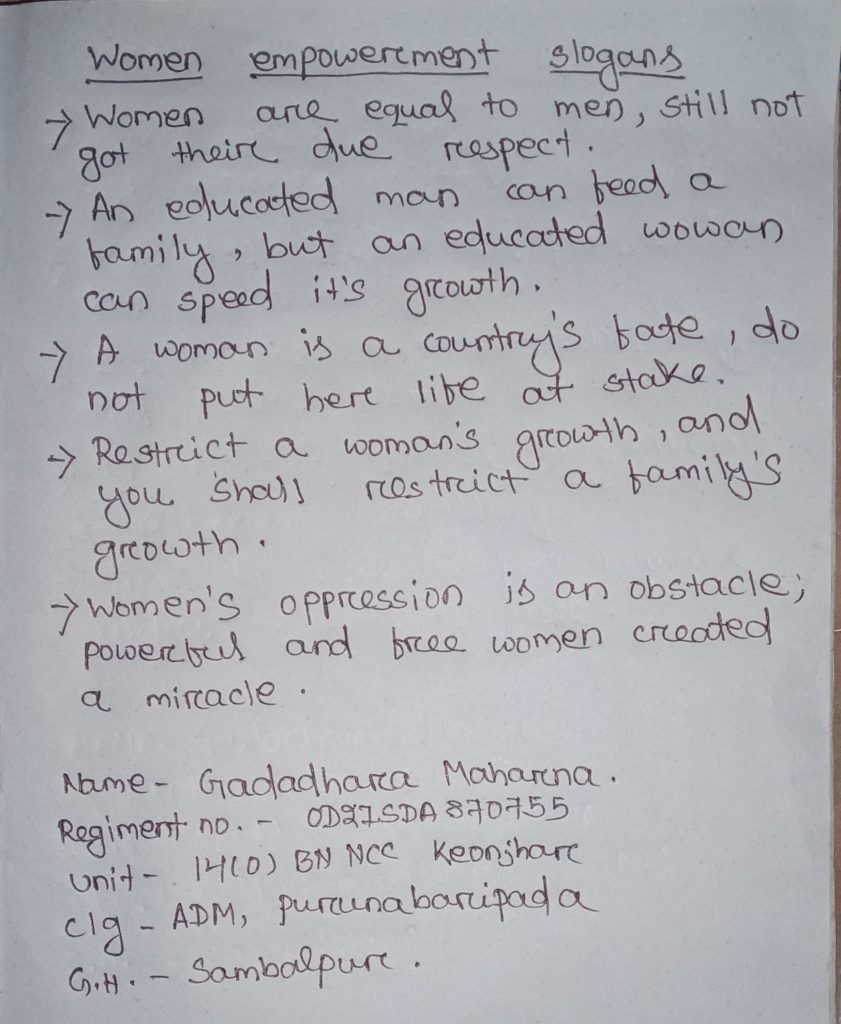 Women empowerment slogans
→ Women are equal to men, still not
got their due respect.
→ An educated man can feed a
family, but an educated wowan
can speed it's growth.
→ A woman is a country's fate, do
not put here life at stake.
→ Restrict a woman's growth, and
you shall restrict a family's
growth.
→ Women's oppression is an obstacle;
powerful and free women created
a miracle.
Name - Gadadhara Maharna.
Regiment no. -
Unit - 14(O) BN NCC Keonjhar
clg - ADM, purunabaripada
G.H. - Sambalpur.